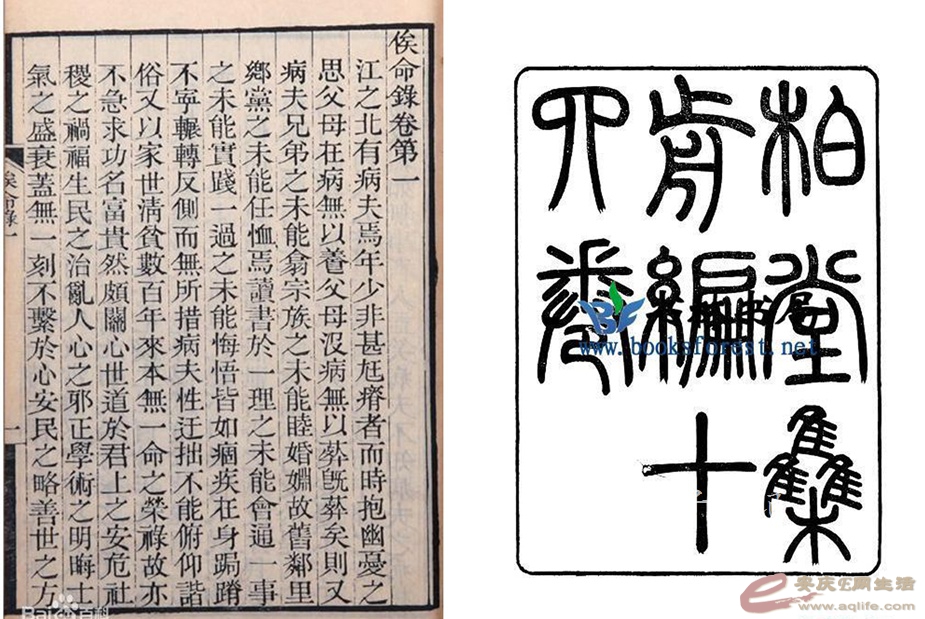 俟命錄卷第一
江之北有病夫焉年少非甚尫瘠者而時抱幽憂之
思父母在病無以養父母沒病無以葬既葬矣則又
病夫兄弟之未能翕宗族之未能睦婚婣故舊鄰里
鄉黨之未能任恤焉讀書於一理之未能會通一事
之未能實踐一過之未能悔悟皆如痼疾在身跼蹐
不寧輾轉反側而無所措病夫性迂拙不能俯仰諧
俗又以家世清貧數百年來本無一命之榮祿故亦
不急求功名富貴然頗關心世道於君上之安危社
稷之禍福生民之治亂人心之邪正學術之明晦士
氣之盛衰蓋無一刻不繫於心安民之略善世之方
俟命錄一
一
Bai百科
柏堂雧
前編十
四卷
BF
www.booksforest.net
安庆E网生活
www.aqlife.com